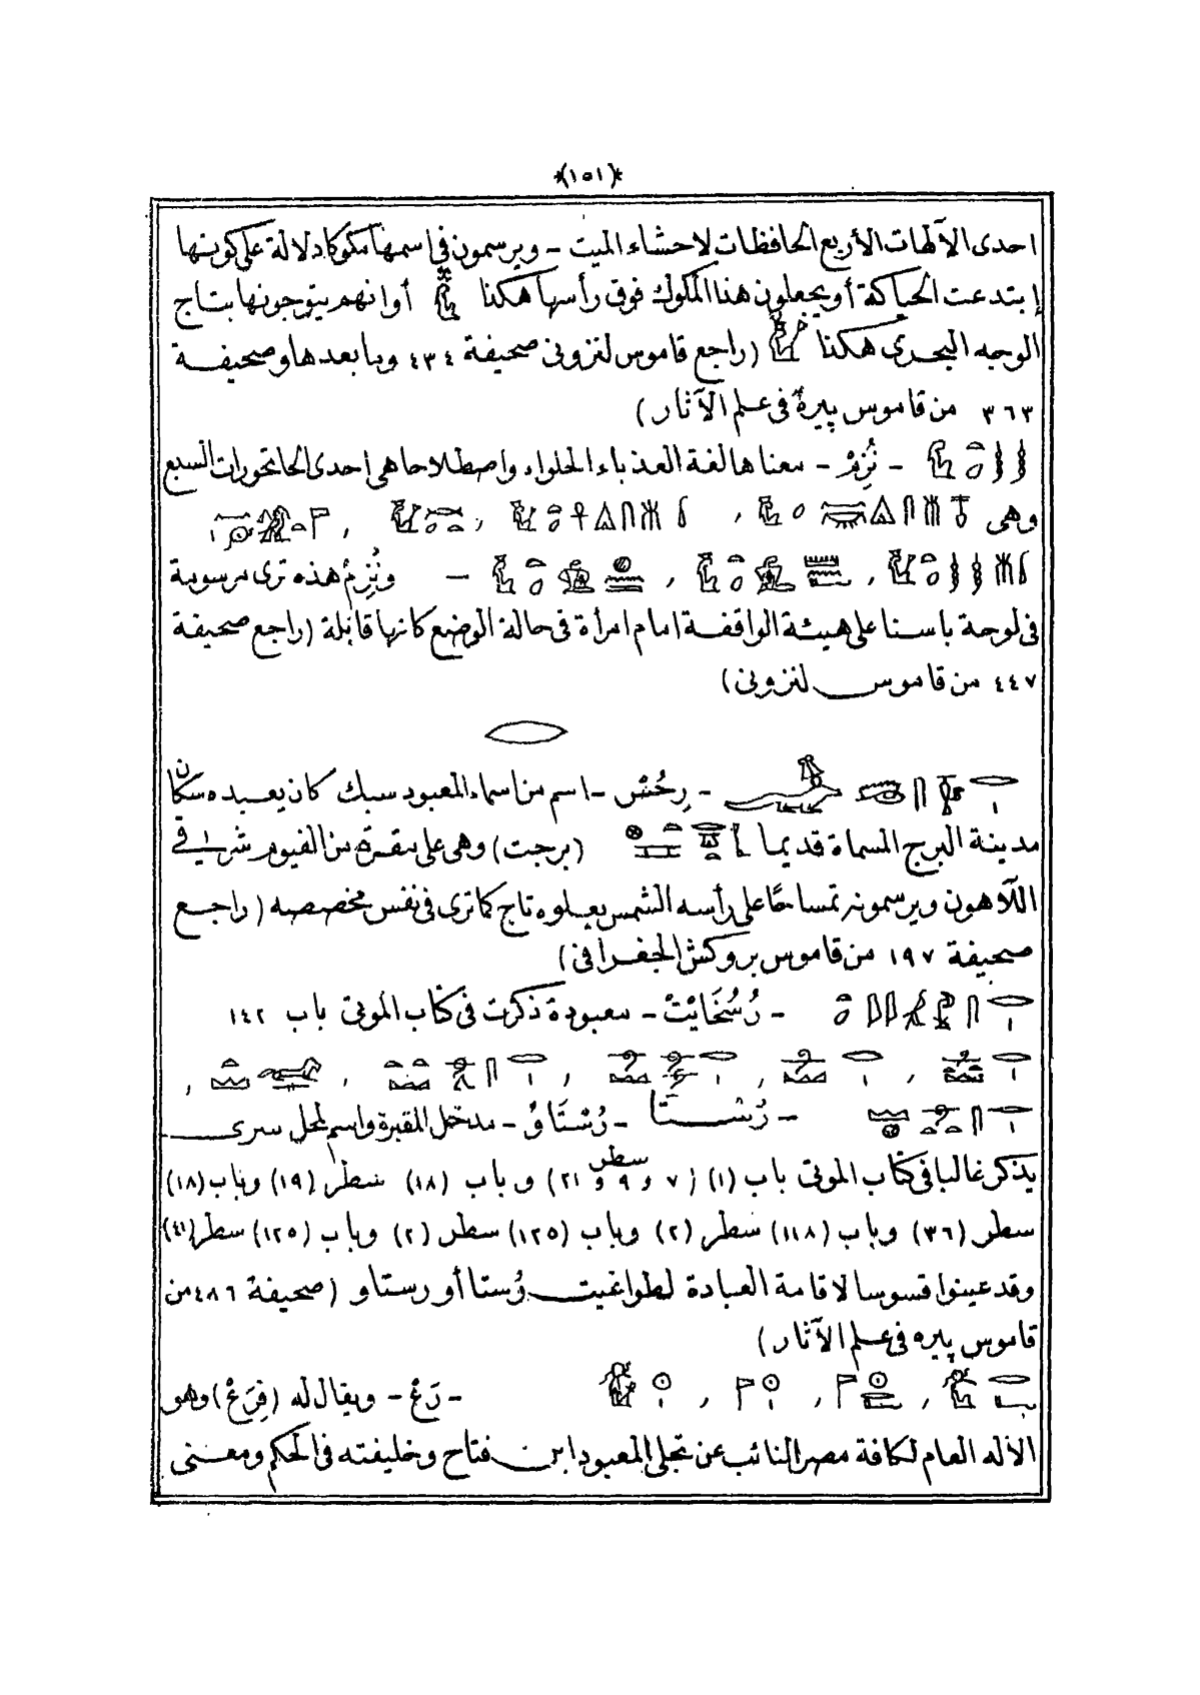 *(١٥١)*
احدى الآلهات الأربع الحافظات لاحشاء الميت - ويرسمون في اسمها مكوكا دلالة على كونها
إبتدعت الحياكة أو يجعلون هذا المكوك فوق رأسها هكذا أوانهم يتوجونها بتاج
الوجه البحرى هكذا (راجع قاموس لنزونى صحيفة ٤٣٤ وما بعدها وصحيفة
٣٦٣ من قاموس پيره فى علم الآثار)
- نُزِمْ - معناها لغة العذباء الحلواء واصطلاحا هى احدى الحاتحورات السبع
وهى
- ونُزِمْ هذه ترى مرسومة
فى لوحة باسنا على هيئة الواقفة امام امرأة فى حالة الوضع كانها قابلة (راجع صحيفة
٤٤٧ من قاموس لنزونى)
- رِحُسْ - اسم من اسماء المعبود سبك كان يعبده سكان
مدينة البرج المسماة قديما (برجت) وهى على مقربة من الفيوم شرقى
اللاهون ويرسمونه تمساحًا على رأسه الشمس يعلوه تاج كما ترى فى نفس مخصصه (راجع
صحيفة ١٩٧ من قاموس بروكش الجغرافى)
- رُسُخَايْتْ - معبودة ذكرت فى كتاب الموتى باب ١٤٢
- رُسْتَا - رُسْتَاوْ - مدخل المقبرة واسم لمحل سرى
يذكر غالبا فى كتاب الموتى باب (١) سطر (٧ و ٩ و ٢١) وباب (١٨) سطر (١٩) وباب (١٨)
سطر (٣٦) وباب (١١٨) سطر (٢) وباب (١٢٥) سطر (٢) وباب (١٢٥) سطر (٤١)
وقد عينوا قسوسا لاقامة العبادة لطواغيت رُستا أو رستاو (صحيفة ٤٨٦ من
قاموس پيره فى علم الآثار)
- رَعْ - ويقال له (فِرَعْ) وهو
الاله العام لكافة مصر النائب عن تجلى المعبود ابن فتاح وخليفته فى الحكم ومعنى